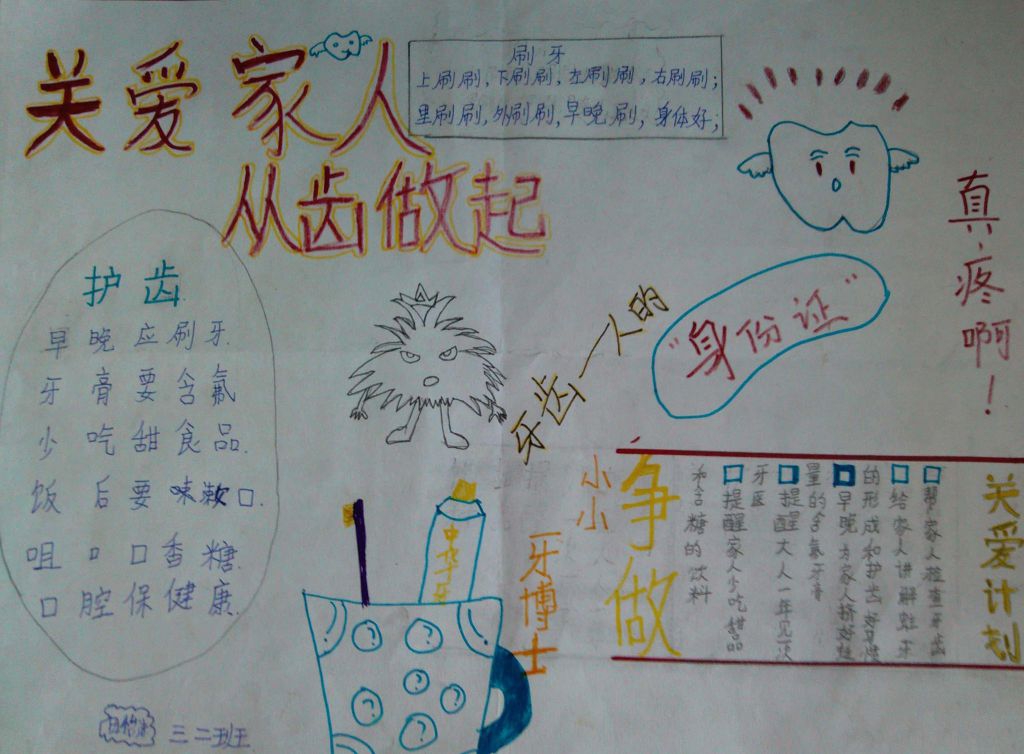 关爱家人
从齿做起
刷牙
上刷刷，下刷刷，左刷刷，右刷刷；
里刷刷，外刷刷，早晚刷，身体好；
真疼啊！
护齿
早晚应刷牙
牙膏要含氟
少吃甜食品
饭后要漱口
咀口口香糖
口腔保健康
牙齿一人的
"身份证"
争做
小小
牙博士
关爱计划
帮家人检查牙齿
给家人讲解蛀牙
的形成和护齿
早晚为家人挤好
量的含氟牙膏
提醒大人一年见一次
牙医
提醒家人少吃甜品
和含糖的饮料
三二班